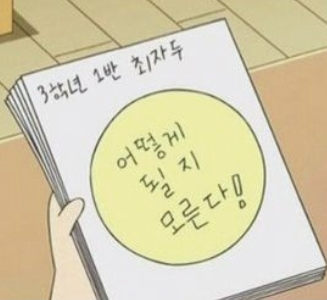 3학년 1반 최자두
어떻게
될 지
모른다!